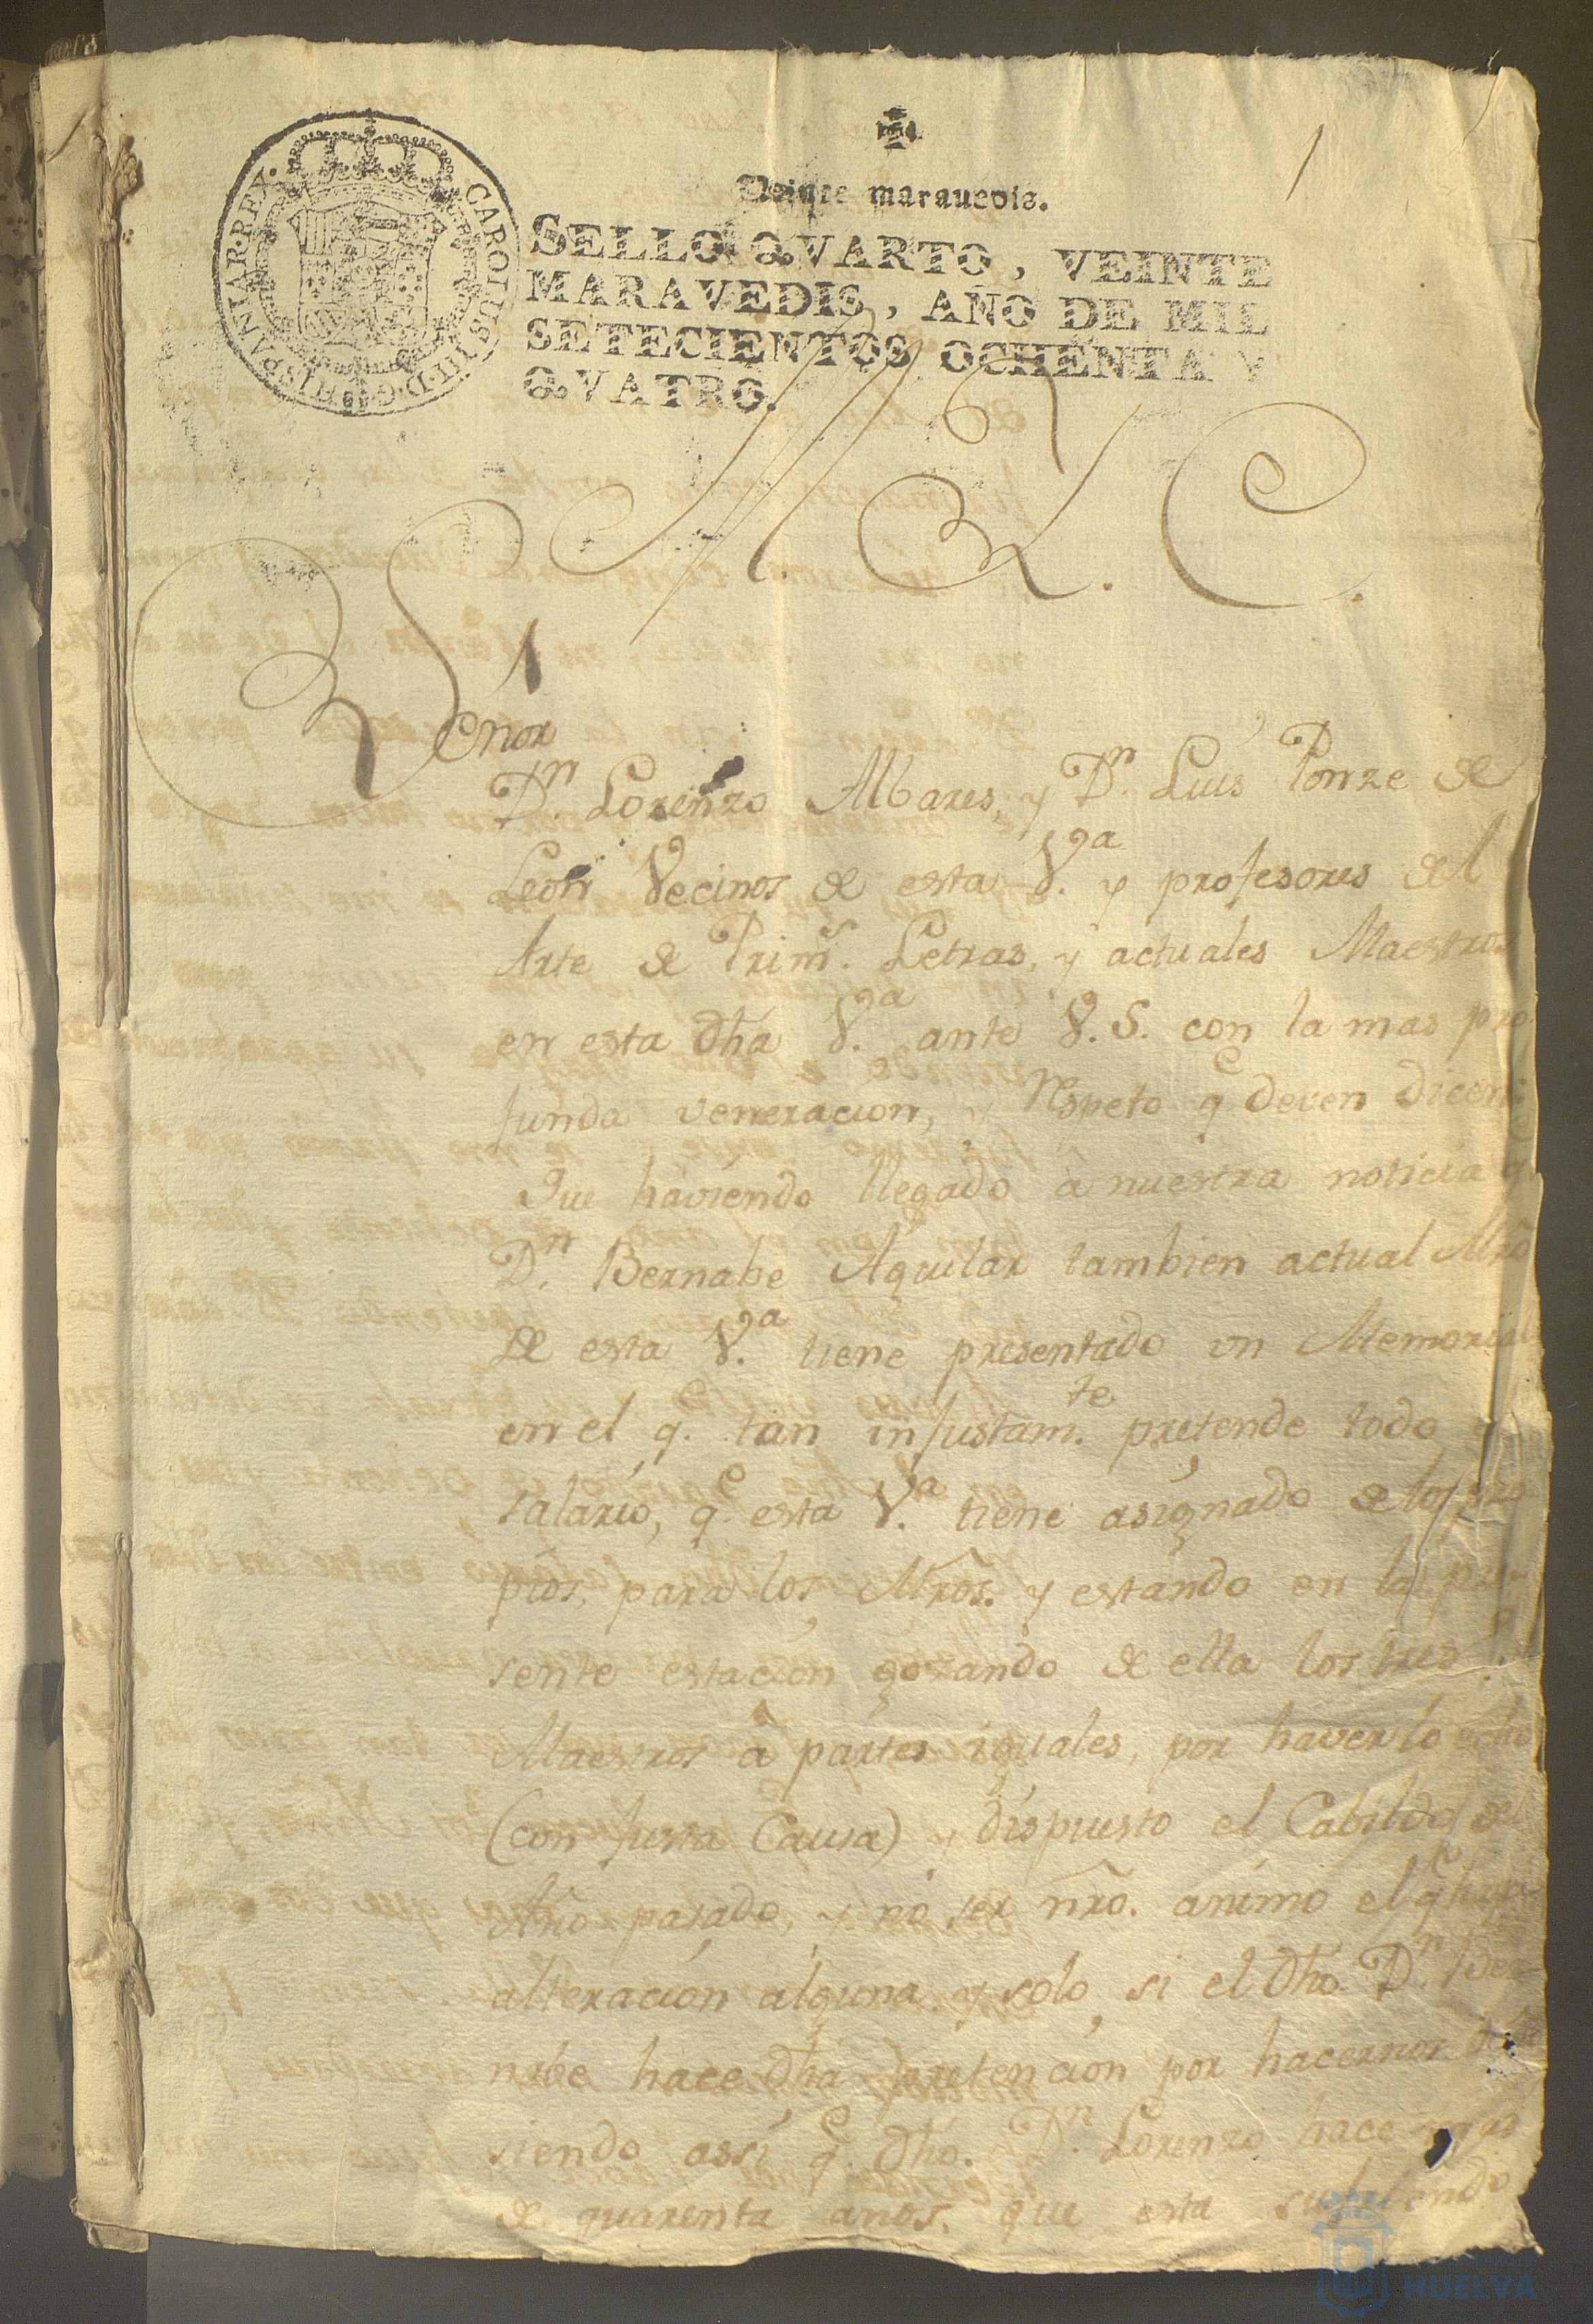 1
Veinte marauedis.
SELLO QVARTO, VEINTE
MARAVEDIS, AÑO DE MIL
SETECIENTOS OCHENTA Y
QVATRO.
CAROLUS III D. G. HISPANIAR. REX.
M. L. C.
Señor
Dn. Lorenzo Albares, y Dn. Luis Ponze de
Leon Vecinos de esta V.a y profesores del
Arte de Prims. Letras, y actuales Maestros
en esta dha V.a ante V.S. con la mas pro
funda veneracion, y respeto qe. deven dicen:
Que haviendo llegado á nuestra noticia q.
Dn. Bernabe Aguilar tambien actual Mrõ
de esta V.a tiene presentado un Memorial
en el q. tan injustamte. pretende todo
salario, qe. esta V.a tiene asignado de los pro
pios, para los Mrõs. y estando en la pre-
sente estacion gozando de ella los tres
Maestros á partes iguales, por haverlo
(con justa Causa) y dispuesto el Cabildo del
Año pasado, y no ser nrõ. animo el qe. haya
alteracion alguna, y solo si el dho. Dn. Ber-
nabe hace dha pretencion por hacernos
siendo assi qe. dho. Dn. Lorenzo hace mas
de quarenta años, que esta
HUELVA